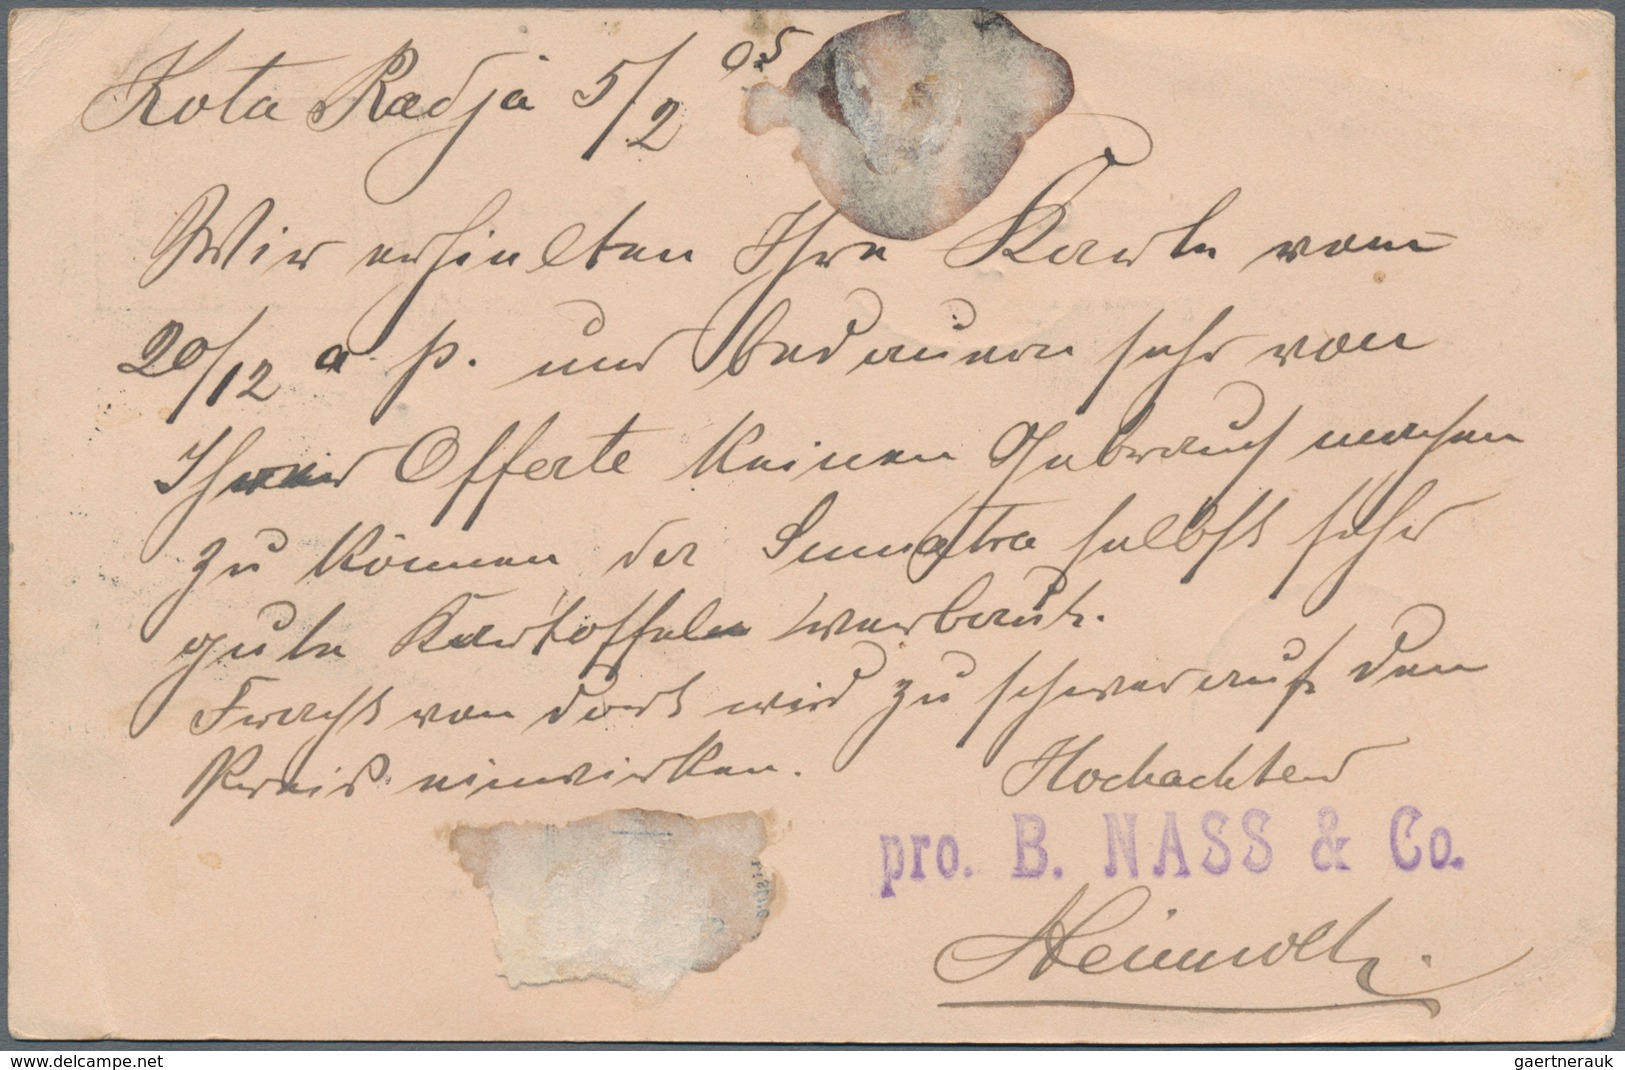 Kota Radja 5/2 05
Wir erhielten Ihre Karte vom
20/12 a. p. und bedauern sehr von
Ihrer Offerte keinen Gebrauch machen
zu können da Sumatra selbst sehr
gute Kartoffeln verbaut.
Fracht von dort wird zu schwer auf den
Preis einwirken. Hochachtend
pro. B. NASS & Co.
delcampe.net
gaertnerauk